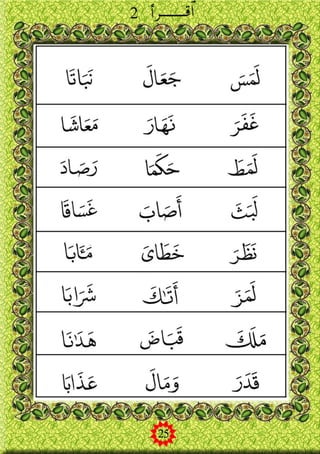 أَقـــــرأ 2
لَمَسَ جَعَلَ نَبَاتَ
غَفَرَ نَهَارَ مَعَاشَ
لَمَطَ حَكَمَا رَصَادَ
لَبَثَ أَصَابَ غَسَاقَ
نَظَرَ خَطَايَ مَئَابَا
لَمَزَ أَتَىٰكَ شَرَابَا
مَلَكَ قَبَاضَ هَدَانَا
قَدَرَ وَمَالَ عَذَابَا
25